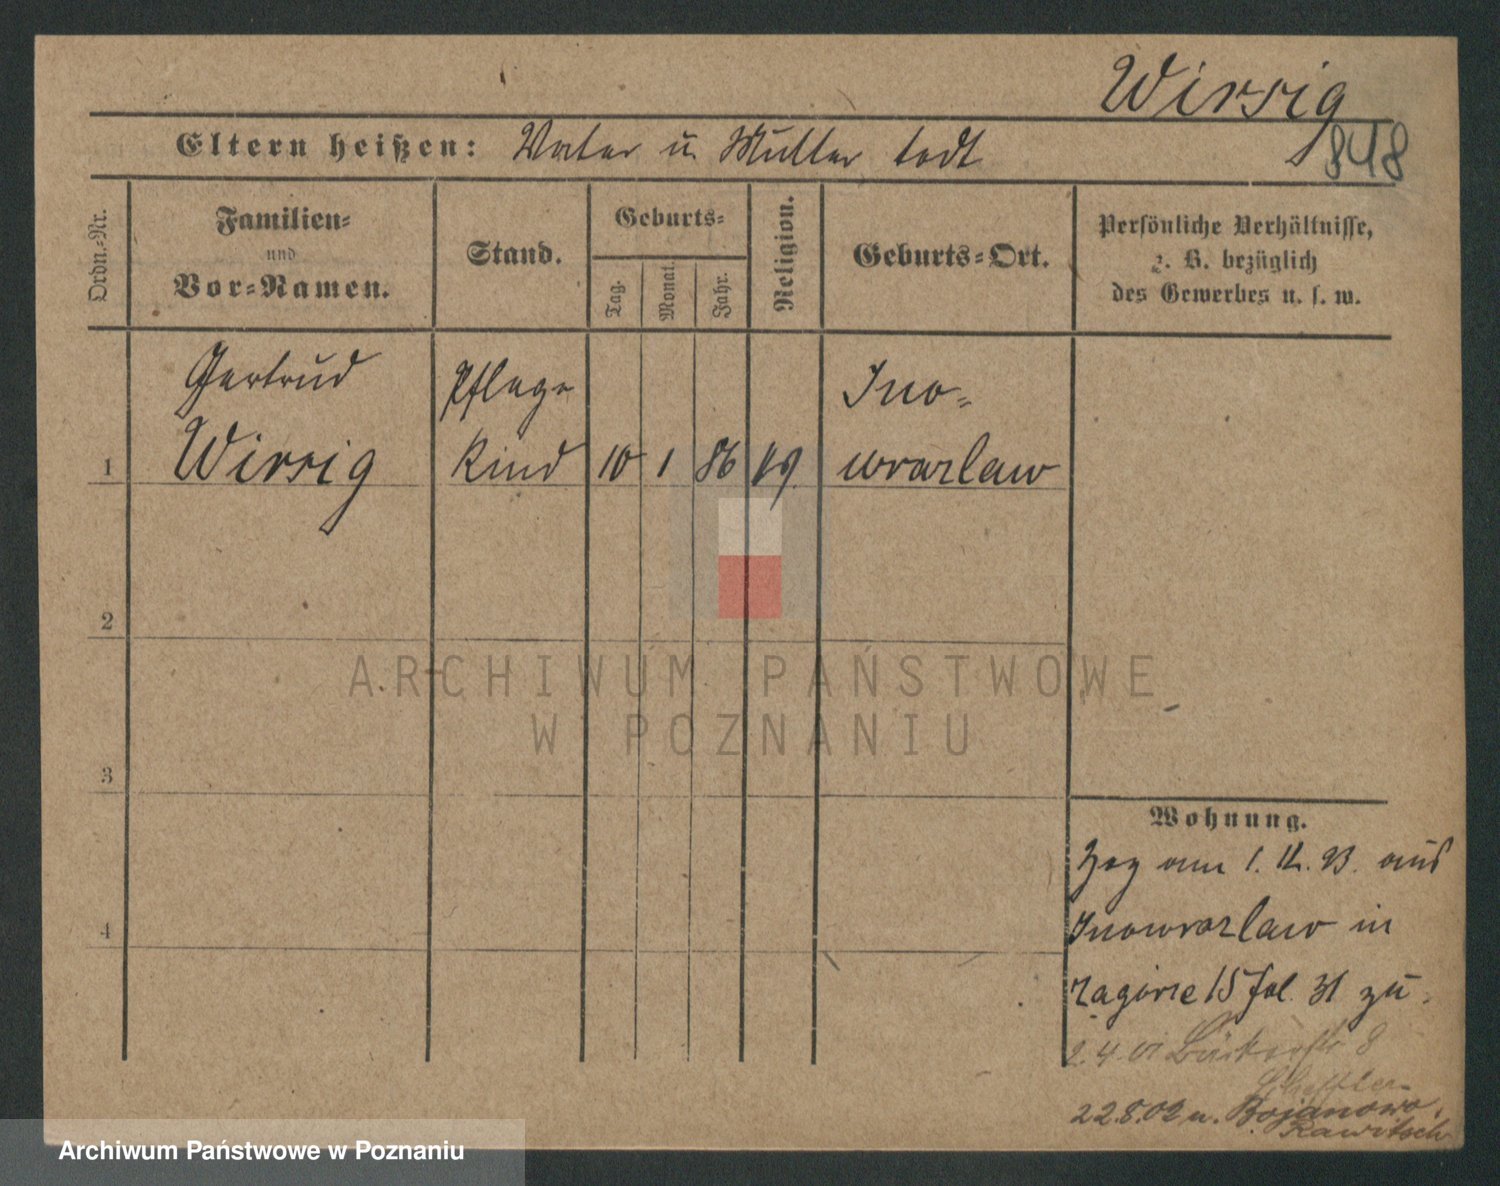 Wirsig
848
Eltern heißen: Vater u. Mutter todt
Ordn.-Nr.
Familien-
und
Vor-Namen.
Stand.
Geburts-
Tag.
Monat.
Jahr.
Religion.
Geburts-Ort.
Persönliche Verhältnisse,
z. B. bezüglich
des Gewerbes u. s. w.
Gertrud
Pflege
Ino-
1
Wirsig
Kind
10
1
86
wrazlaw
2
3
4
Wohnung.
Zog am 1. 12. 93. aus
Inowrazlaw in
Zagórze 15 fol. 31 zu.
2.4.01 Bäckerstr 8
22.8.02 n. Bojanowo,
Rawitsch
ARCHIWUM PAŃSTWOWE
W POZNANIU
Archiwum Państwowe w Poznaniu